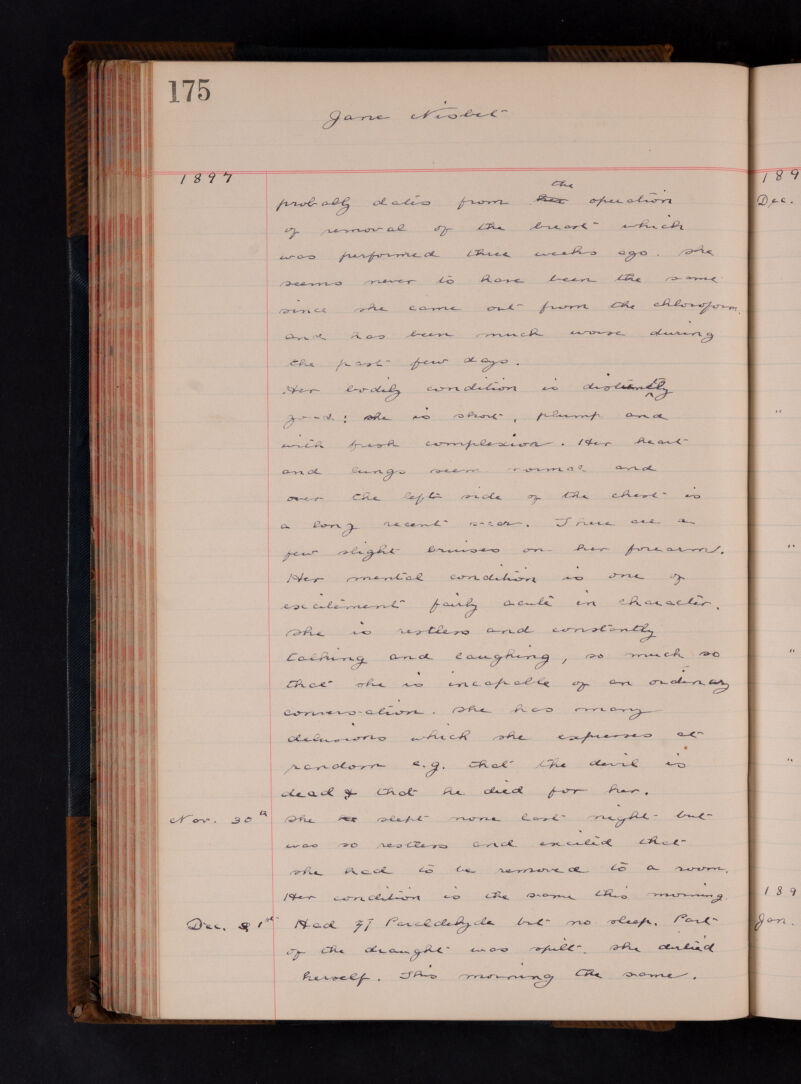 175
Jane Nisbet
1897
189
probably dates from her the operation
Dec.
of removal of the breast which
was performed three weeks ago. She
seems never to have been the same
since she came out from the chloroform
and has been much worse during
the past few days.
Her bodily condition is distinctly
good; she is short, plump and
"
with fresh complexion. Her heart
and lungs seem normal and
over the left side of the chest is
a long recent scar. There are a
few slight bruises on her forearm.
"
Her mental condition is one of
excitement fairly acute in character.
She is restless and constantly
talking and laughing, so much so
"
that she is incapable of an ordinary
conversation. She has many
delusions which she expresses at
random e.g. that the devil is
"
dead & that he died for her.
Nov. 30th She slept none last night but
was so restless and excited that
she had to be removed to a room.
Her condition is the same this morning.
189
Dec. 1st Had ʒj Paraldehyde but no sleep. Part
Jan.
of the draught was spilt. She dirtied
herself. This morning the same.